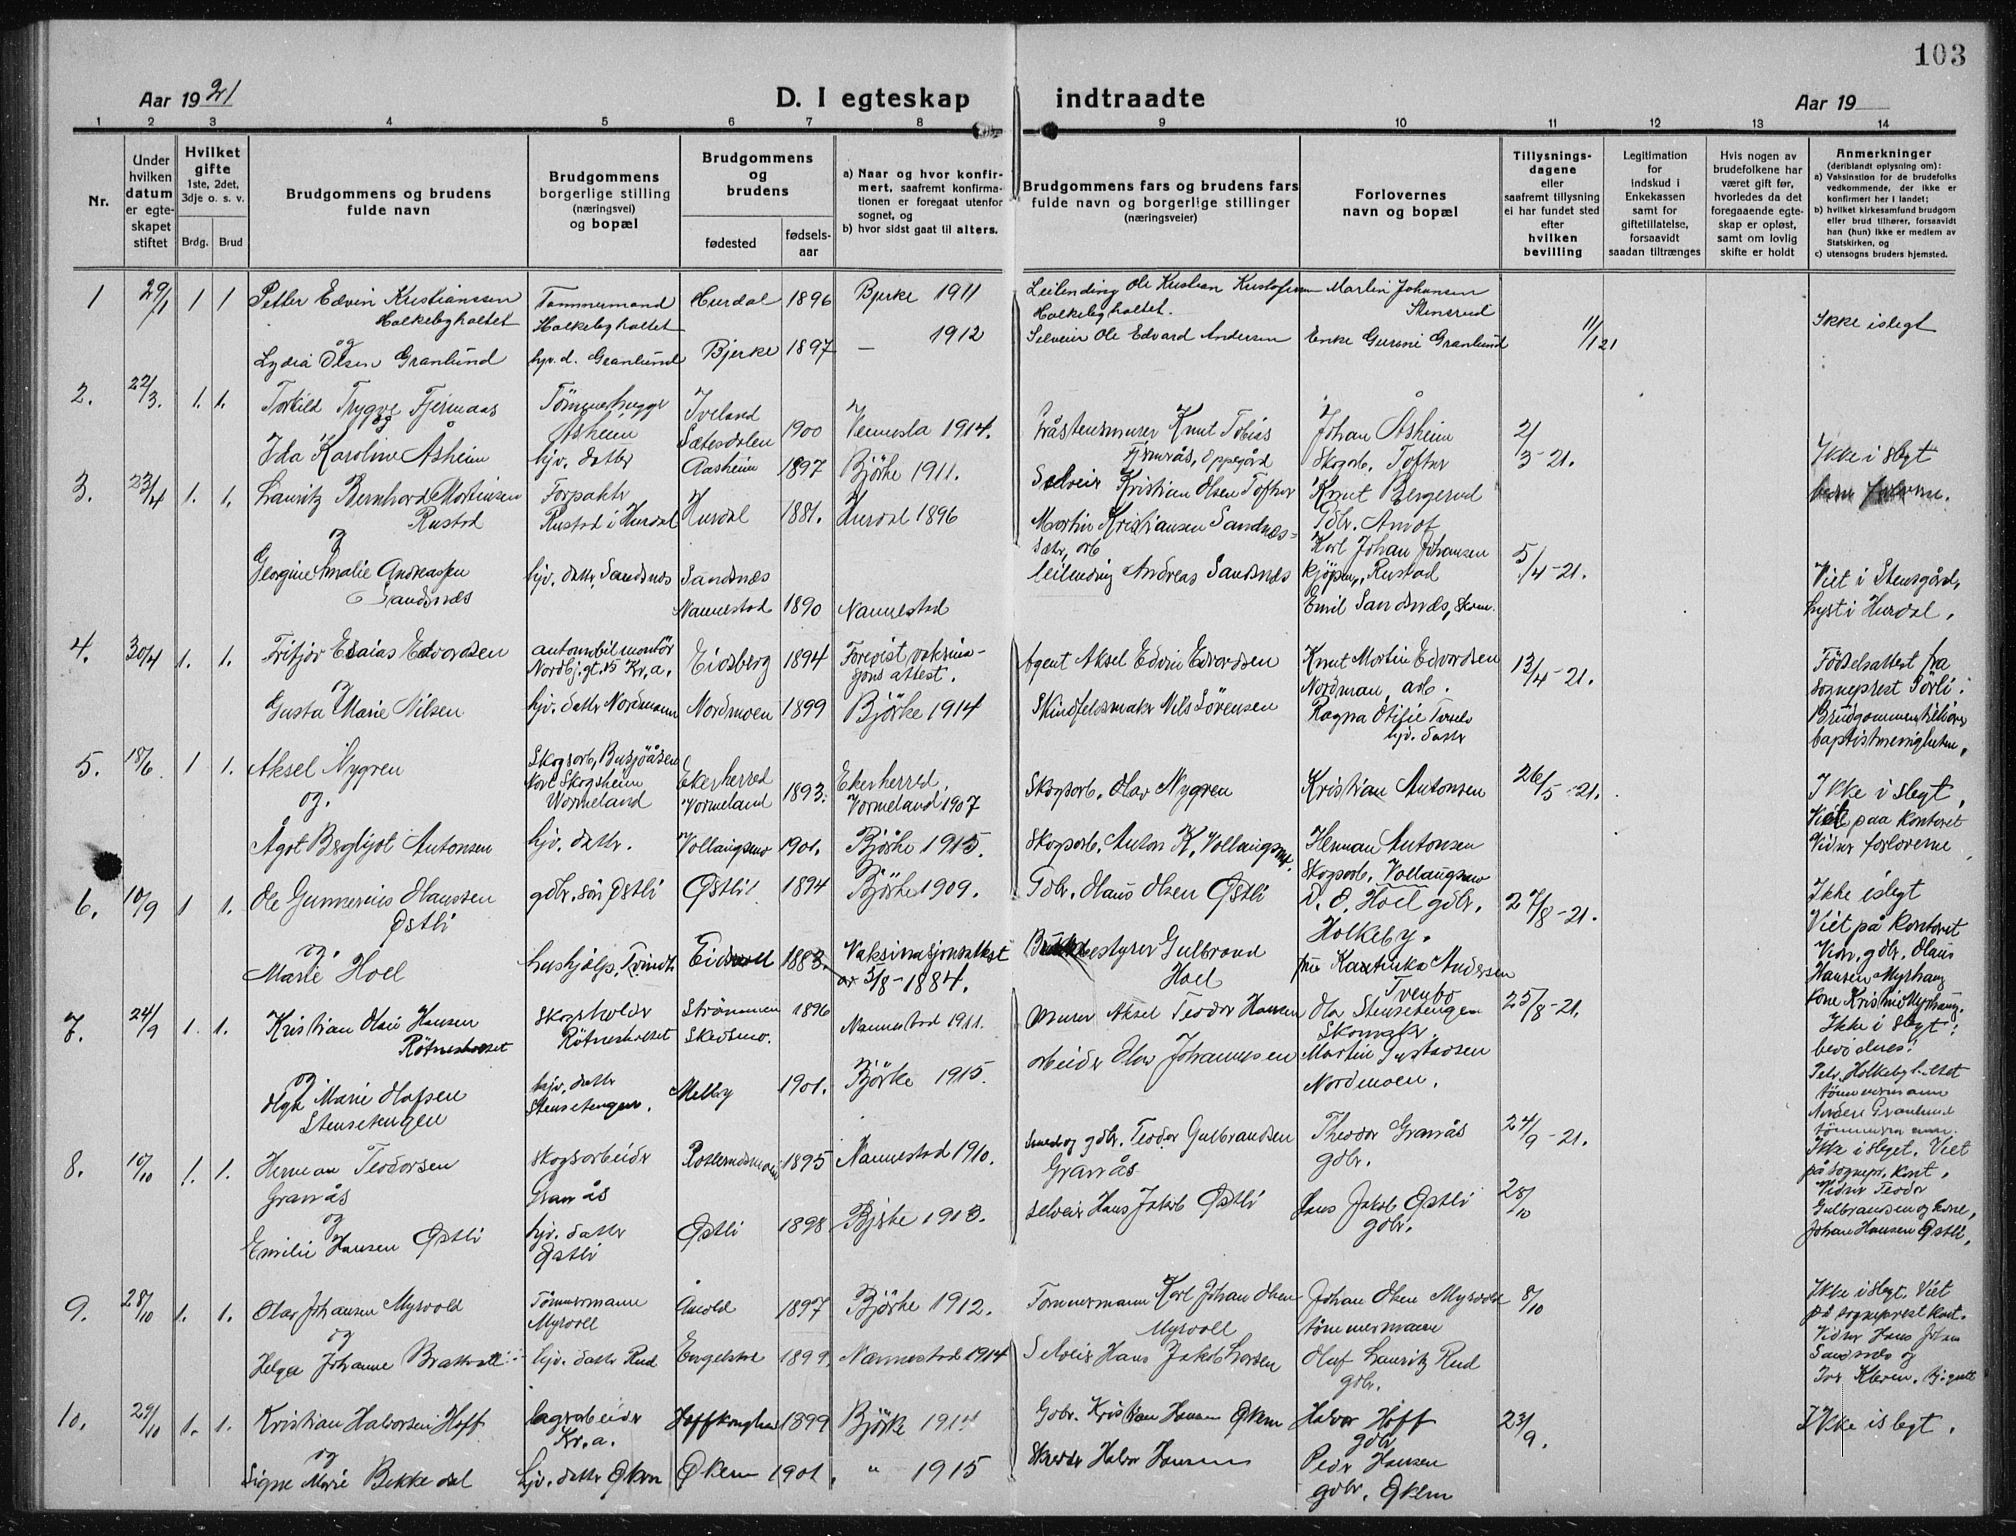 103
Aar 1921 D. I egteskap indtraadte Aar 19
1 2 3 4 5 6 7 8 9 10 11 12 13 14
Nr.
Under hvilken datum er egteskapet stiftet
Hvilket gifte 1ste, 2det, 3dje o. s. v.
Brdg. Brud
Brudgommens og brudens fulde navn
Brudgommens borgerlige stilling (næringsvei) og bopæl
Brudgommens og brudens
fødested fødsels-aar
a) Naar og hvor konfirmert, saafremt konfirmationen er foregaat utenfor sognet, og
b) hvor sidst gaat til alters.
Brudgommens fars og brudens fars fulde navn og borgerlige stillinger (næringsveier)
Forlovernes navn og bopæl
Tillysnings-dagene eller saafremt tillysning ei har fundet sted efter hvilken bevilling
Legitimation for indskud i Enkekassen samt for giftetillatelse, forsaavidt saadan tiltrænges
Hvis nogen av brudefolkene har været gift før, hvorledes da det foregaaende egteskap er opløst, samt om lovlig skifte er holdt
Anmerkninger (deriblandt oplysning om):
a) Vaksination for de brudefolks vedkommende, der ikke er konfirmert her i landet;
b) hvilket kirkesamfund brudgom eller brud tilhører, forsaavidt han (hun) ikke er medlem av Statskirken, og
c) utensogns bruders hjemsted.
1 29/1 1 1 Petter Edvin Kristianssen Tømmermand Hurdal 1896 Bjerke 1911 Leilending Ole Kristian Kristofersen Martin Johansen
Holkebyhaltet Holkebyhaltet Holkebyhaltet. Stensrud
og 1912 11/1 21 Ikke i slegt
Lydia Olsen Granlund hjv. d. Granlund Bjerke 1897 — Selveier Ole Edvard Andersen Enke Gurine Granlund
2. 22/3. 1. 1. Torkild Trygve Fjermaas Tömmerhugger Iveland
og Åsheim Sætesdalen 1900 Vennesla 1914. Gråstensmurer Knut Tobias Johan Åsheim 2/3-21.
Ida Karoline Åsheim hjv. datter Aasheim 1897 Björke 1911. Fjermås, Oppegård Skogarb. Tofter Ikke i slegt
3. 23/4 1. 1. Lauritz Bernhard Martinsen Forpakter Hurdal 1881. Hurdal 1896 Selveier Kristian Olsen Tofter Knut Bergerud
Rustad Rustad i Hurdal Martin Kristiansen Sandnes- Gdbr.
og sæter, arb Karl Johan Johansen 5/4-21.
Georgine Amalie Andreassen hjv. datter, Sandsnæs Sandsnæs leilending Andreas Sandsnæs Rustad Viet i Stensgård,
Sandsnæs Nannestad 1890 Nannestad Emil Sandsnæs, lyst i Hurdal.
4. 30/4 1. 1. Fritjov Esaias Edvardsen automobilmontör Eidsberg 1894 Forevist vaksina- Agent Aksel Edvin Edvardsen Knut Martin Edvardsen 13/4-21. Födselsattest fra
Nordbj. gt. 15 Kr.a. sjons attest. Nordmoen, arb. sogneprest Sörli.
og Brudgommen tilhörer
Gusta Marie Nilsen hjv. datter Nordmoen Nordmoen 1899 Björke 1914 Skindfeldmaker Nils Sörensen Ragna Otifie baptistmenigheten.
hjv. datter
5. 18/6 1 1. Aksel Nygren Skogsarb. Busjöåsen
Nore Skogsheim Ekerherred 1893. Ekerherred, Skogsarb. Olav Nygren Kristian Antonsen 26/5-21. Ikke i slegt,
og. Wormeland Vormeland Vormeland 1907 Viet paa kontoret
Ågot Bergljot Antonsen hjv. datter. Vollaugsmo 1901. Björke 1915. Skogsarb. Anton K. Vollaugsmo Herman Antonsen Vidner forloverne
Skogsarb. Vollaugsmo
6. 10/9 1 1. Ole Gunnerius Hanssen gdbr. sön Østli Østli 1894 Björke 1909. Gdbr. Hans Olsen Østli O. O. Hoel gdbr. 27/8-21. Ikke i slegt
Østli Holkeby. Viet på kontoret
og. Vidn. gdbr. Olaus
Marie Hoel hushjelp, Eidsvoll 1883. Vaksinasjonsattest bestyrer Gulbrand fru Katinka Andersen Hansen Myrhaug
av 5/8-1884. Hoel Tvenbo kone Kristine Myrhaug.
7. 24/9 1. 1. Kristian Olai Hansen Skogsholder Strömmen 1896 Nannestad 1911. Murer Aksel Teodor Hansen Olav Stensetengen 25/8-21. Ikke i slegt:
Rötnesholset Rötnesholset Skedsmo. Skomaker bevidnes:
og hjv. datter arbeider Olav Johannesen Martin Gustavsen Petr. Holkebyhaltet
Olga Marie Olafsen Stensetengen. Melby 1901. Björke 1915. Nordmoen. tömmermann
Stensetengen Anders Granlund
tömmermann.
8. 10/10 1. 1. Herman Teodorsen skogsarbeider 1895 Nannestad 1910. Smed og gdbr. Teodor Gulbrandsen Theodor Granås 24/9-21. Ikke i slegt. Viet
Granås Granås Granås gdbr. på sognepr. kont.
og hjv. datter Østli 1898 Bjerke 1913. selveier Hans Jakob Østli Hans Jakob Østli 28/10 Vidner Teodor
Emilie Hansen Østli Østli gdbr. Gulbrandsen og kone,
Johan Hansen Østli.
9. 28/10 1. 1. Olav Johansen Myrvold Tömmermann 1897 Björke 1912. Tömmermann Karl Johan Olsen Johan Olsen Myrvold 8/10 Ikke i slegt. Viet
og Myrvoll Myrvoll tömmermann på sogneprest kont.
Helga Johanne Bratvoll hjv. datter Rud Engelstad 1899. Nannestad 1914 Selveier Hans Jakob Larsen Olaf Lauritz Rud Vidner Hans Johan
gdbr. Sandsnæs og
10. 29/10 1. 1. Kristian Halvorsen Hoff lagerarbeider 1899 Björke 1914 Gdbr. Kristian Hansen Økern Halvor Hoff 23/9. Ikke i slegt.
og Kr.a. gdbr
Signe Marie Bekkedal hjv. datter Økern Økern 1901. „ 1915 Skredder Halvor Hansen Peder Hansen
gdbr. Økern